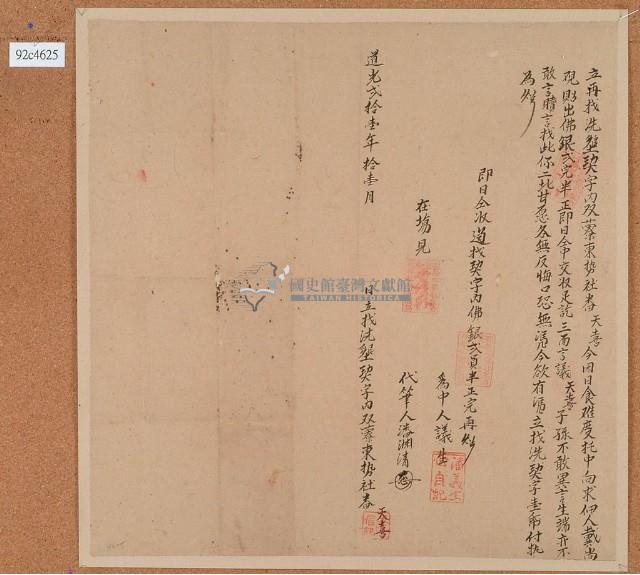 立再找洗墾契字內双藔東勢社番天喜今因日食难度托中向求伊人戴尚
現貼出佛銀弍元半正即日仝中交收足訖三面言議天喜子孫不敢異言生端亦不
敢言贖言找此你二比甘愿各無反悔口恐無憑今欲有憑立找洗契字壹帋付执
為炤
即日仝收過找契字內佛銀弍員半正完再炤
為中人議生
在塲見
代筆人潘渊清
道光弍拾壹年拾壹月
日立找洗墾契字內双藔東勢社番天喜
92c4625
國史館臺灣文獻館
TAIWAN HISTORICA